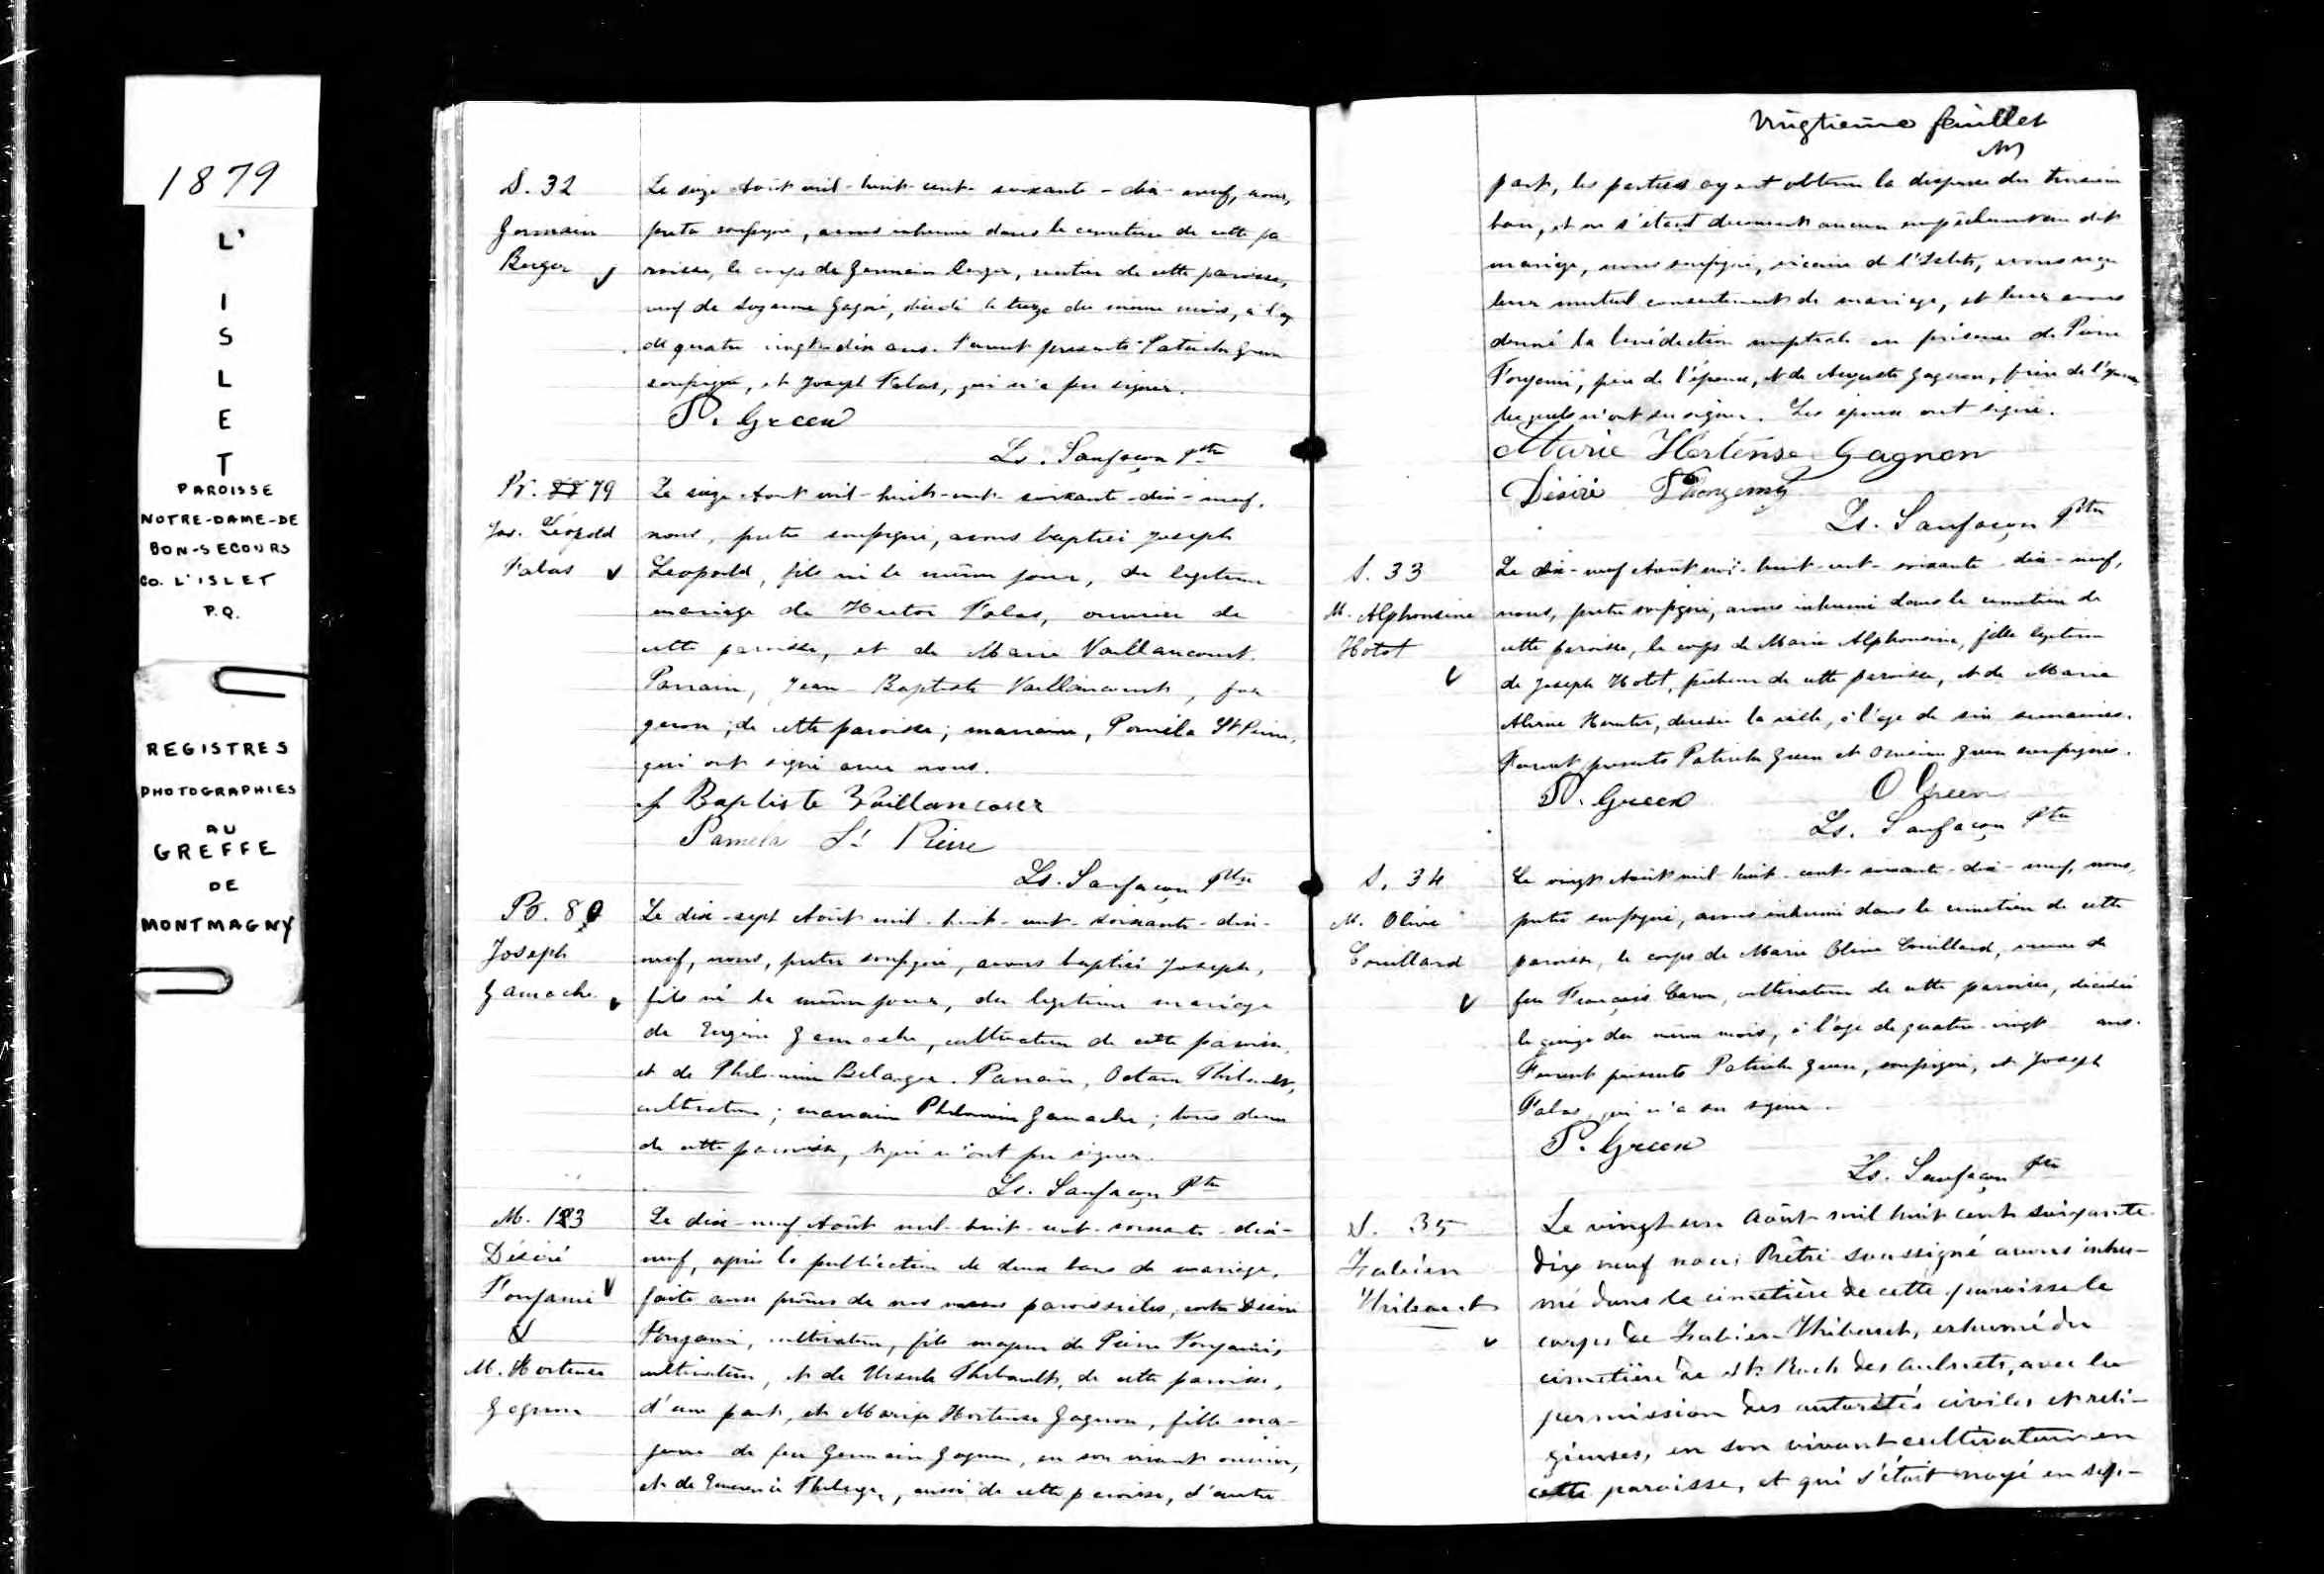 1879
L'
I
S
L
E
T
PAROISSE
NOTRE-DAME-DE
BON-SECOURS
CO. L'ISLET
P.Q.
REGISTRES
PHOTOGRAPHIES
AU
GREFFE
DE
MONTMAGNY
S. 32
Germain
Berger
Le seize Août mil-huit-cent-soixante-dix-neuf, nous,
prêtre soussigné, avons inhumé dans le cimetière de cette pa
roisse, le corps de Germain Berger, rentier de cette paroisse,
veuf de Suzanne Gagné, décédé le treize du même mois, à l'age
de quatre vingt-dix ans. Furent presents Patrick Green
soussigné, et Joseph Talas, qui n'a pu signer.
P. Green
Ls. Sanfaçon Ptre
79
Jos. Léopold
Talas
Le seize Août mil-huit-cent-soixante-dix-neuf,
nous, prêtre soussigné, avons baptisé Joseph
Léopold, fils né le même jour, du légitime
mariage de Hector Talas, ouvrier de
cette paroisse, et de Marie Vaillancourt.
Parrain, Jean-Baptiste Vaillancourt, for
geron, de cette paroisse; marraine, Paméla St Pierre,
qui ont signé avec nous.
J Baptiste Vaillancour
Pamela St Pierre
Ls. Sanfaçon Ptre
80
Joseph
Gamache
Le dix-sept Août mil-huit-cent-soixante-dix-
neuf, nous, prêtre soussigné, avons baptisé Joseph,
fils né le même jour, du légitime mariage
de Eugène Gamache, cultivateur de cette paroisse,
et de Philomène Belanger. Parrain, Octave Thibault,
cultivateur; marraine Philomène Gamache; tous deux
de cette paroisse, et qui n'ont pu signer.
Ls. Sanfaçon Ptre
M. 13
Désiré
Fongamie
&
M. Hortense
Gagnon
Le dix-neuf Août mil-huit-cent-soixante-dix-
neuf, après la publication de deux bans de mariage,
faite aux prônes de nos messes paroissiales, entre Désiré
Fongami, cultivateur, fils majeur de Pierre Fongami,
cultivateur, et de Ursule Thibault, de cette paroisse,
d'une part, et Marie Hortense Gagnon, fille ma-
jeure de feu Germain Gagnon, en son vivant ouvrier,
et de Théberge, aussi de cette paroisse, d'autre
Vingtième feuillet
part, les parties ayant obtenu la dispense du troisième
ban, et ne s'étant découvert aucun empêchement au dit
mariage, nous soussigné, vicaire de l'Islet, avons reçu
leur mutuel consentement de mariage, et leur avons
donné la bénédiction nuptiale en présence de Pierre
Fongami, père de l'époux, et de Auguste Gagnon, frère de l'épouse
lesquels n'ont su signer. Les époux ont signé.
Marie Hortense Gagnon
Désiré
Ls. Sanfaçon Ptre
S. 33
M. Alphonsine
Hotot
Le dix-neuf Août mil-huit-cent-soixante-dix-neuf,
nous, prêtre soussigné, avons inhumé dans le cimetière de
cette paroisse, le corps de Marie Alphonsine, fille légitime
de Joseph Hotot, pêcheur de cette paroisse, et de Marie
décédée la veille, à l'age de six semaines.
Furent presents Patrick Green et Onésime Green soussignés.
P. Green
O Green
Ls. Sanfaçon Ptre
S. 34
M. Olive
Couillard
Le vingt Août mil-huit-cent-soixante-dix-neuf, nous,
prêtre soussigné, avons inhumé dans le cimetière de cette
paroisse, le corps de Marie Olive Couillard, veuve de
feu François Caron, cultivateur de cette paroisse, décédée
le du même mois, à l'age de quatre-vingt ans.
Furent présents Patrick Green, soussigné, et Joseph
Talas, qui n'a su signer.
P. Green
Ls. Sanfaçon Ptre
S. 35
Fabien
Thibault
Le vingt un Août mil huit cent soixante
dix neuf nous Prêtre soussigné avons inhu-
mé dans le cimetière de cette paroisse le
corps de Fabien Thibault, exhumé du
cimetière de St. Roch des Aulnets, avec la
permission des autorités civiles et reli-
gieuses, en son vivant cultivateur en
cette paroisse, et qui s'était noyé en sep-